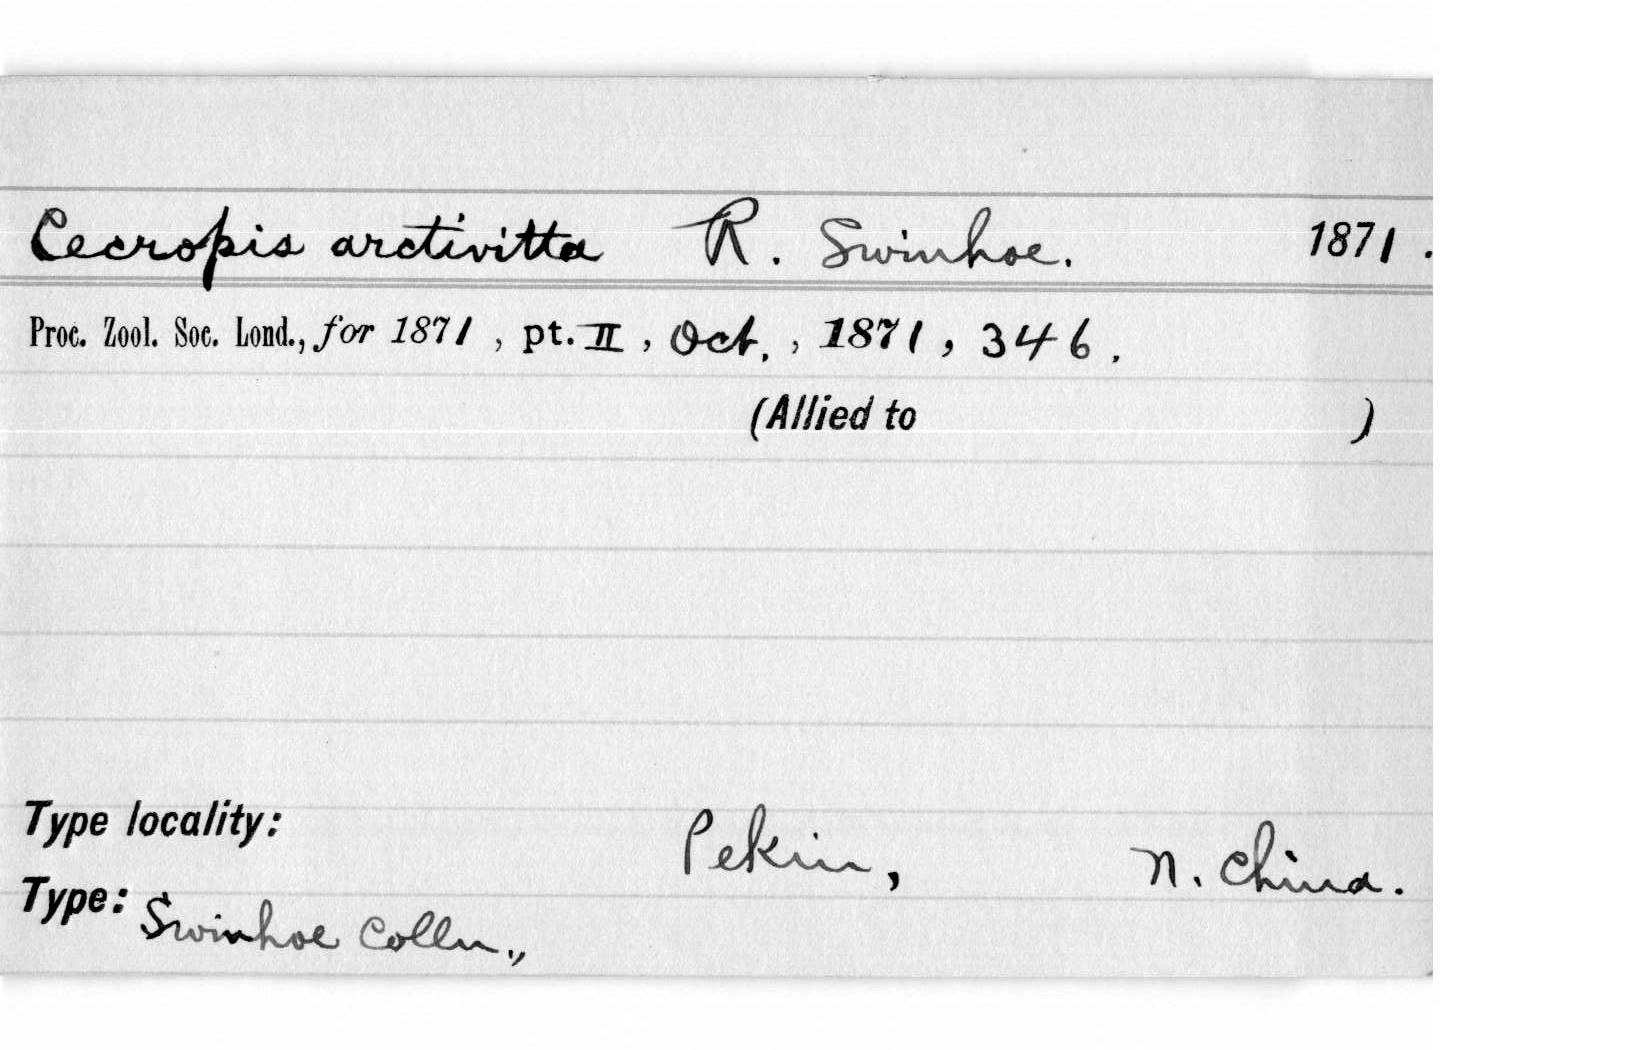 Cecropis arctivitta R. Swinhoe. 1871.
Proc. Zool. Soc. Lond., for 1871, pt. II, Oct., 1871, 346.
(Allied to )
Type locality: Pekin, N. China.
Type: Swinhoe Colln.,